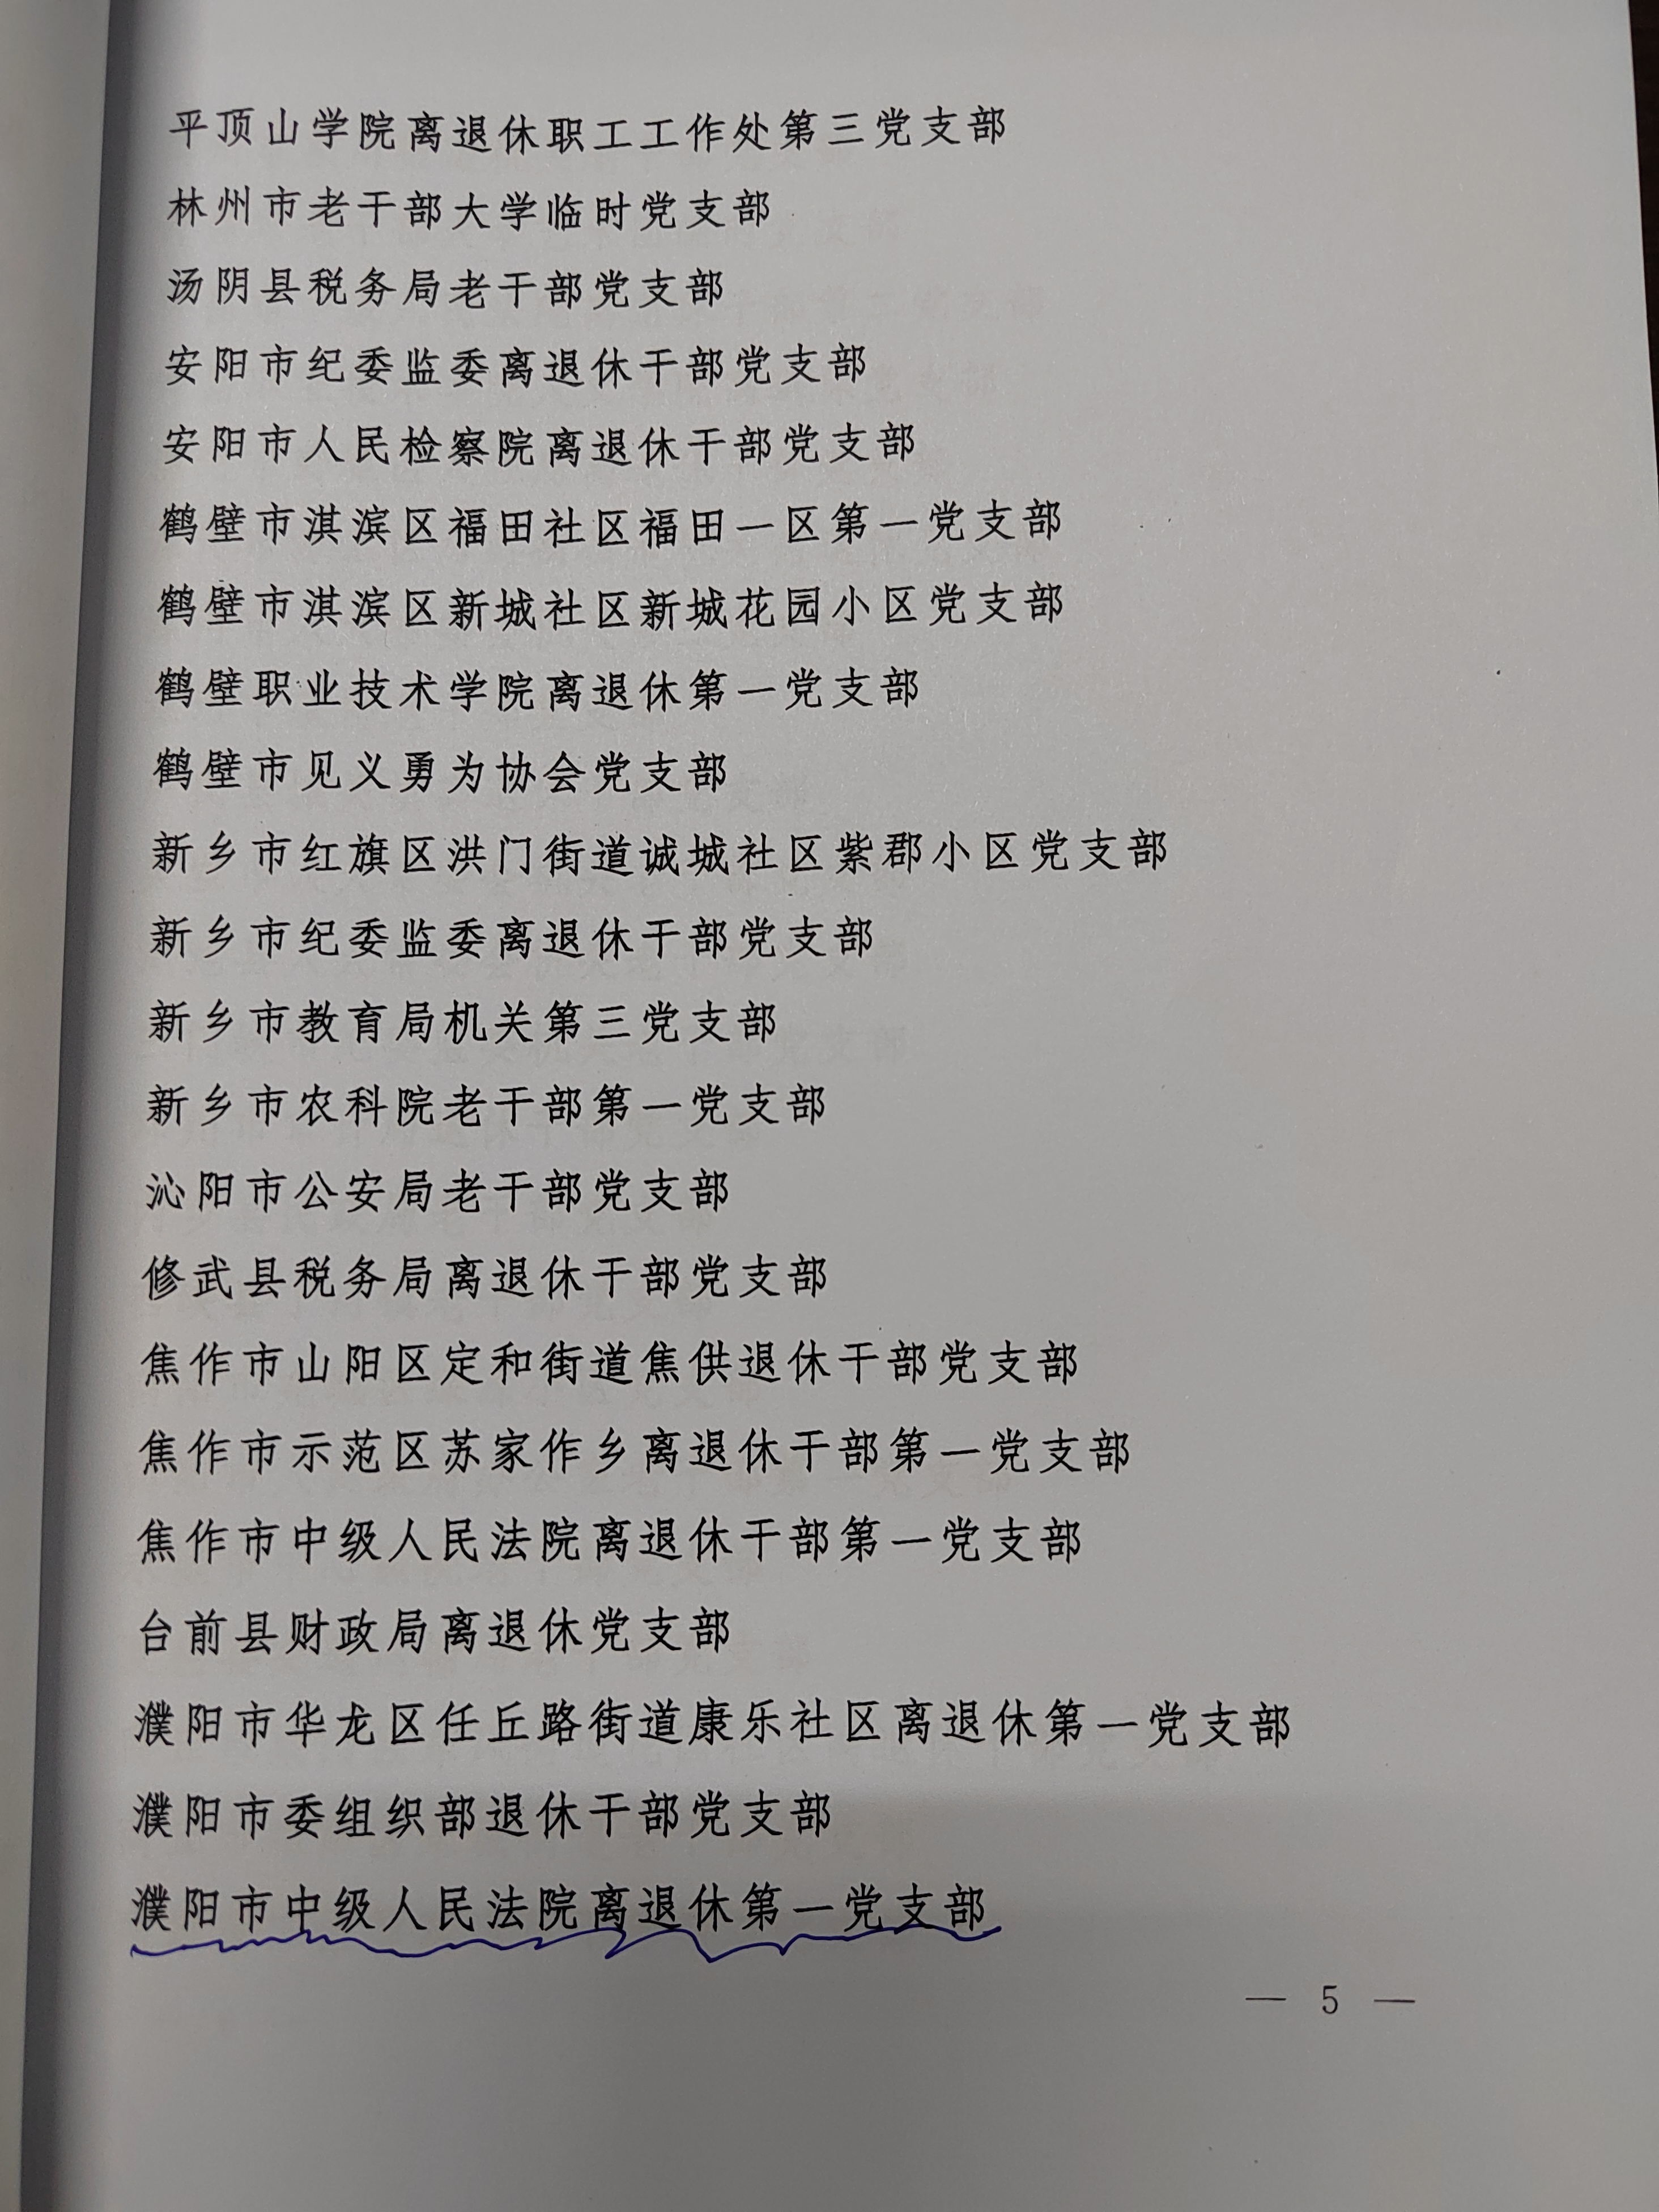 平顶山学院离退休职工工作处第三党支部
林州市老干部大学临时党支部
汤阴县税务局老干部党支部
安阳市纪委监委离退休干部党支部
安阳市人民检察院离退休干部党支部
鹤壁市淇滨区福田社区福田一区第一党支部
鹤壁市淇滨区新城社区新城花园小区党支部
鹤壁职业技术学院离退休第一党支部
鹤壁市见义勇为协会党支部
新乡市红旗区洪门街道诚城社区紫郡小区党支部
新乡市纪委监委离退休干部党支部
新乡市教育局机关第三党支部
新乡市农科院老干部第一党支部
沁阳市公安局老干部党支部
修武县税务局离退休干部党支部
焦作市山阳区定和街道焦供退休干部党支部
焦作市示范区苏家作乡离退休干部第一党支部
焦作市中级人民法院离退休干部第一党支部
台前县财政局离退休党支部
濮阳市华龙区任丘路街道康乐社区离退休第一党支部
濮阳市委组织部退休干部党支部
濮阳市中级人民法院离退休第一党支部
— 5 —